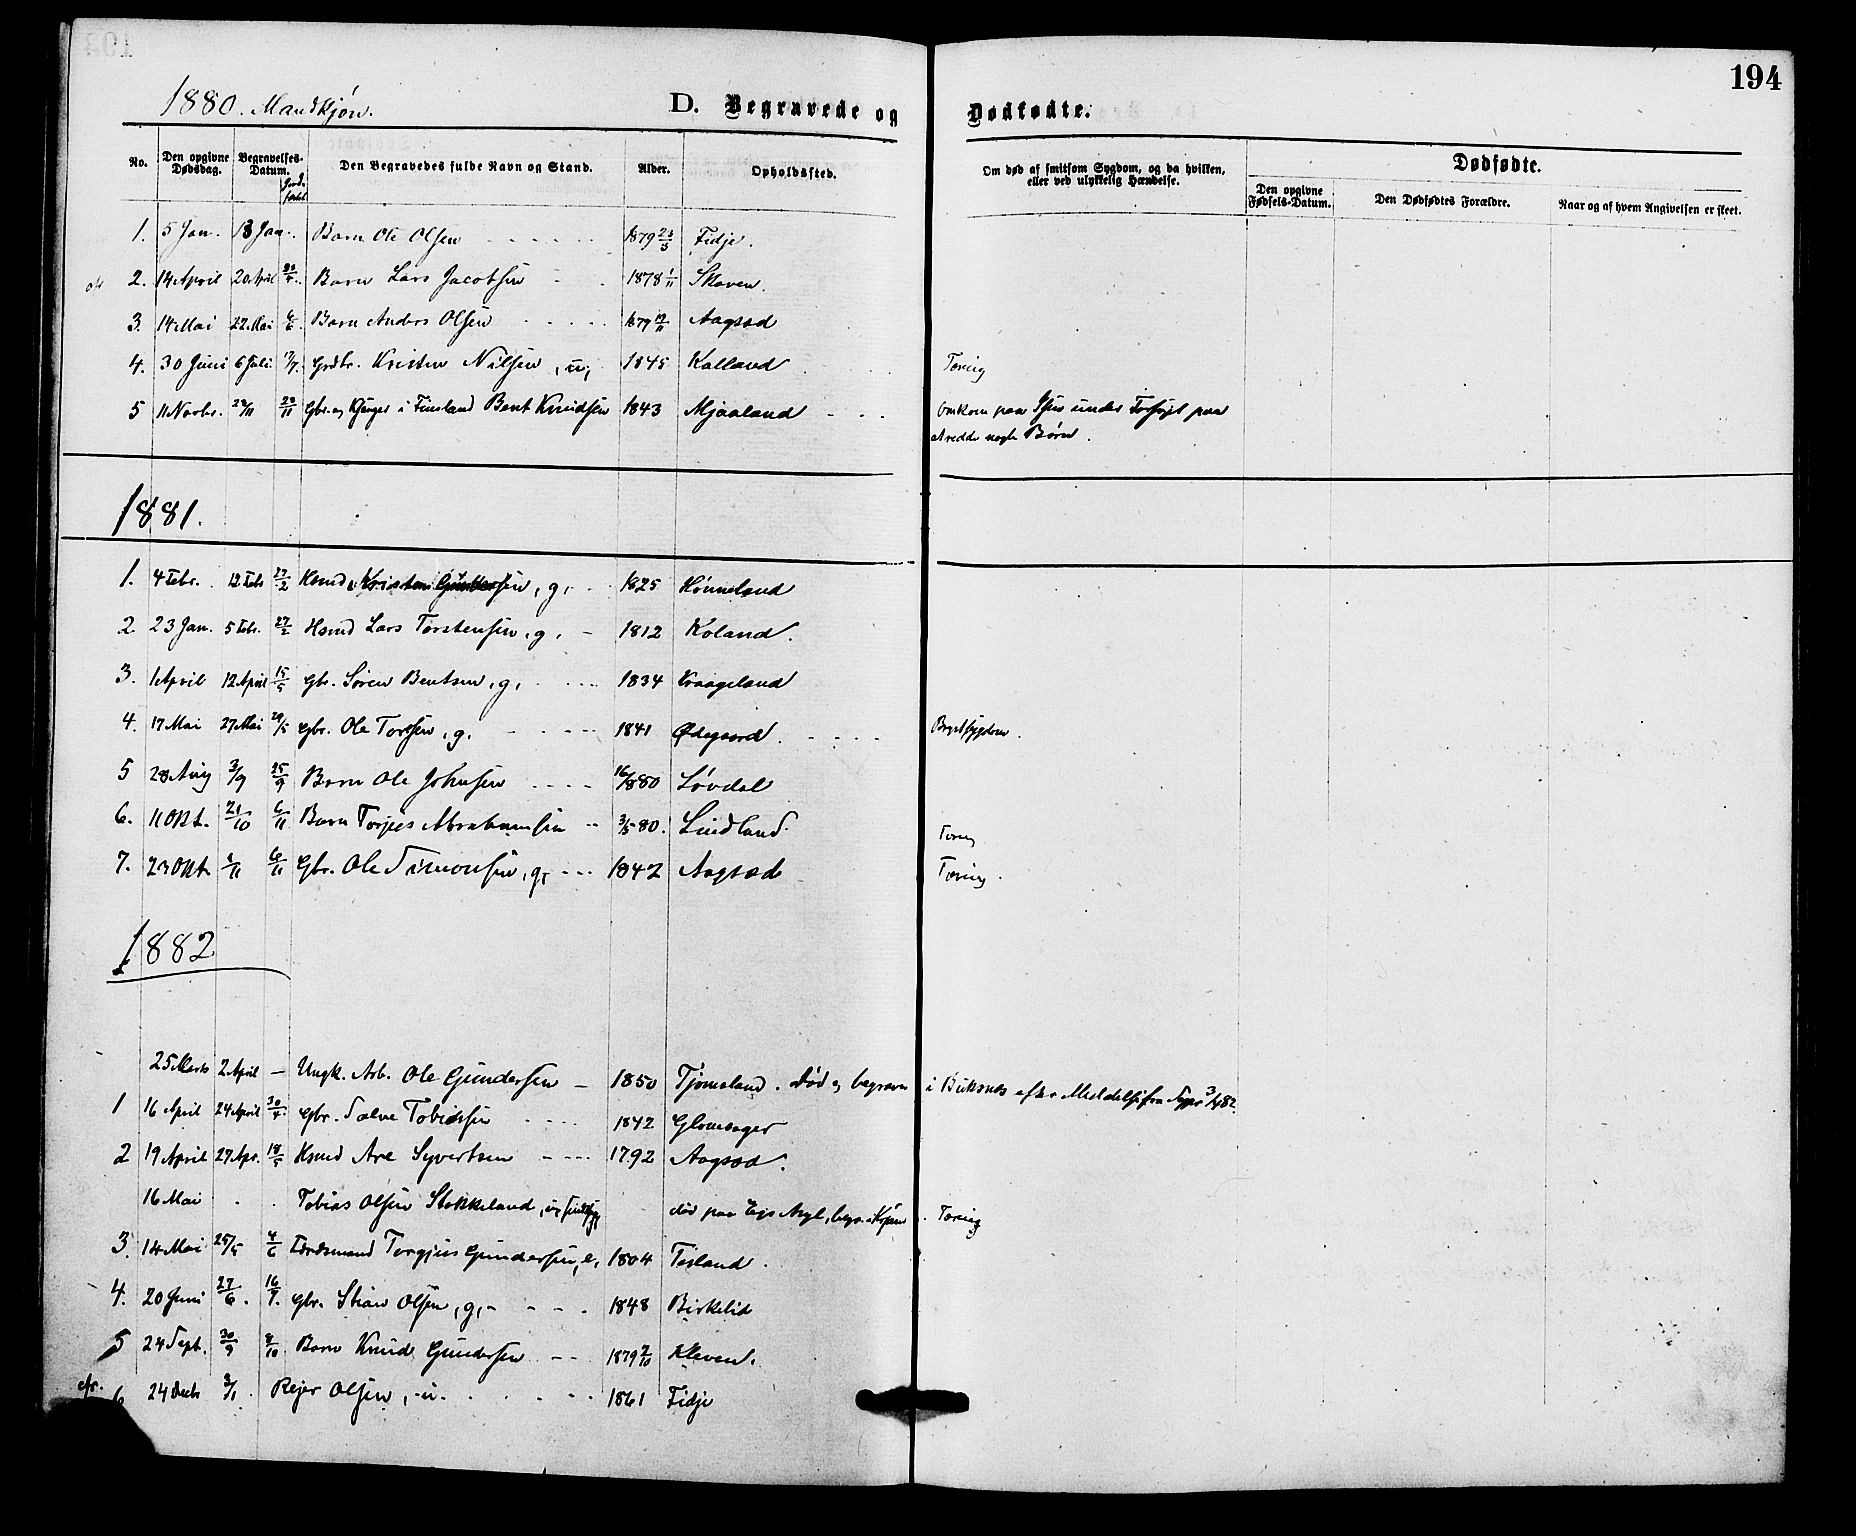 194
1880. Mandkjøn.
D. Begravede og Dødfødte.
No. Den opgivne Dødsdag. Begravelses-Datum. Den Begravedes fulde Navn og Stand. Alder. Opholdssted. Om død af smitsom Sygdom, og da hvilken, eller ved ulykkelig Hændelse. Dødfødte. Den opgivne Fødsels-Datum. Den Dødfødtes Forældre. Naar og af hvem Angivelsen er skeet.
1. 5 Jan. 13 Jan. Barn Ole Olsen 1879 23/3 Fidje.
2. 14 April 20 April Barn Lars Jacobsen 1878 1/11 Skoven.
3. 14 Mai 22 Mai 6/6 Barn Anders Olsen 1879 19/11 Aagsed
4. 30 Juni 6 Juli Grdbr. Kristen Nilsen, u, 1845 Kalland Tæring
5 11 Novbr. 28/11 Gbr. og Kjøger i Finsland Bent Knudsen 1843 Mjaaland Omkom paa Isen under Forsøget paa
at redde nogle Børn.
1881.
1. 4 Febr. 12 Febr 27/2 Hsmd. Kristen Gundersen, g, 1825 Hønneland
2. 23 Jan. 5 Febr. 27/2 Hsmd Lars Torstensen, g, 1812 Koland.
3. 1 April 12 April 15/5 Gbr. Søren Bentsen, g, 1834 Kraageland
4. 17 Mai 27 Mai 29/5 Gbr. Ole Torsen, g. 1841 Ødegaard Brystsygdom.
5 28 Aug 3/9 25/9 Barn Ole Johnsen 1880 Løvdal
6. 11 Okt. 21/10 6/11 Barn Torjus Abrahamsen 3/5 80. Lindland. Tæring
7. 23 Okt. 1/11 6/11 Gbr. Ole Simonsen, g, 1842 Aagsæd Tæring.
1882
25 Marts 2 April — Ungk. Arb. Ole Gundersen — 1850 Tjomsland. Død og begraven i Buksnes efter Meddelelse fra Sogpr 3/4 82.
1 16 April 24 April 30/4 Gbr. Salve Tobiassen 1842
2 19 April 27 Apr. 18/5 Hsmd Are Syvertsen 1792 Aagsæd.
16 Mai Tobias Olsen Stokkeland, u, død paa Egs Asyl, begr. i Tæring
3. 14 Mai 25/5 4/6 Torgjus Gundersen, e, 1804 Tisland.
4. 20 Juni 27/6. 16/7. Gbr. Stian Olsen, g, 1848 Birkelid
5 24 Sept. 30/9 8/10 Barn Knud Gundersen 1879 7/10 Kleven.
6 24 Decb 3/1 Rejer Olsen, u. 1861 Fidje